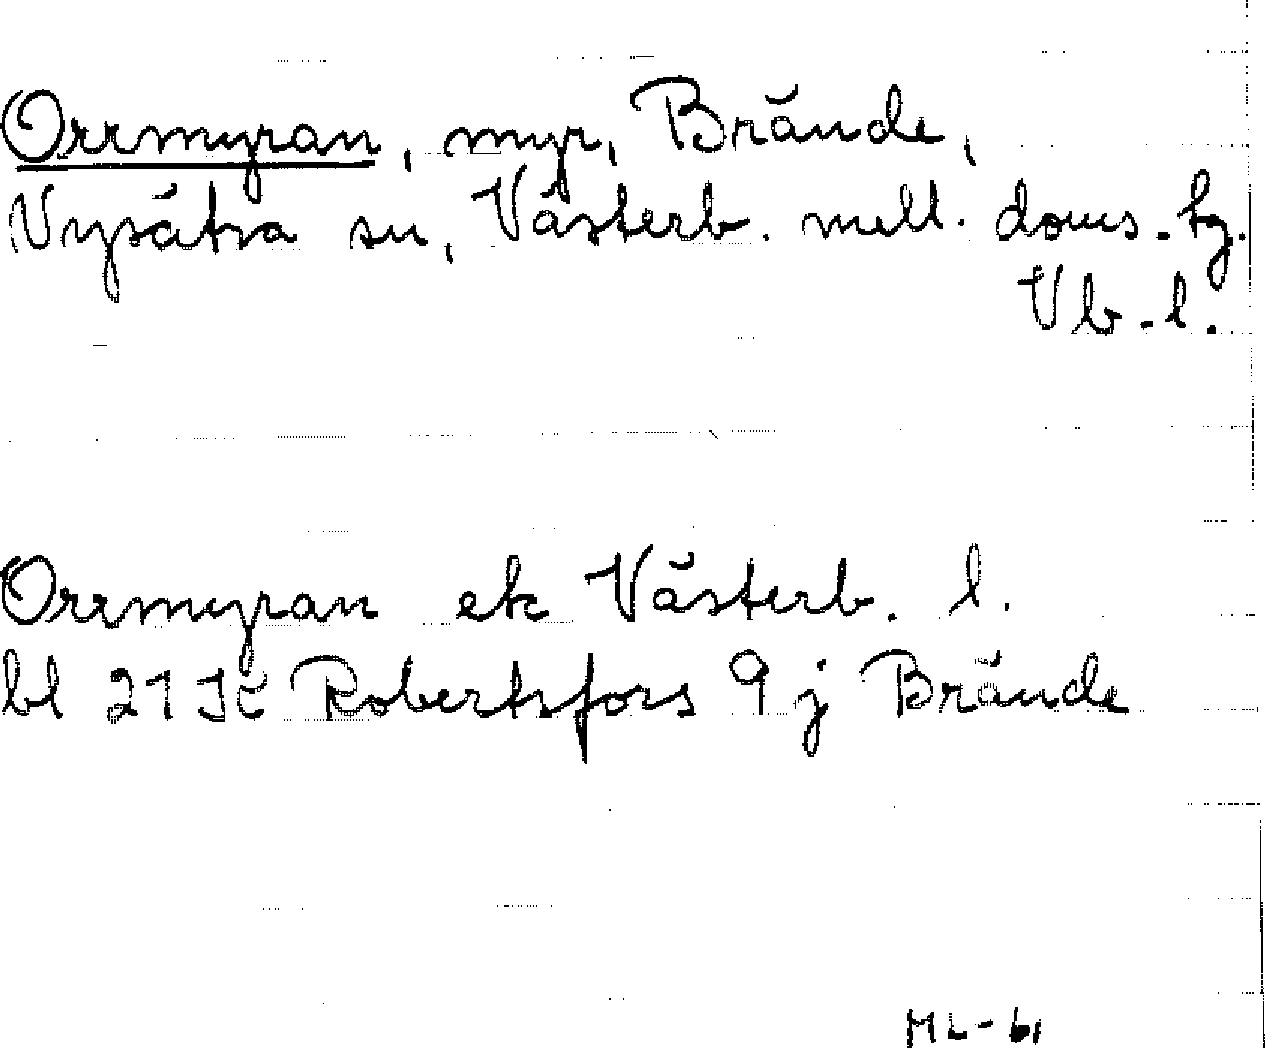 Orrmyran, myr, Brände,
Nysätra sn, Västerb. mell. doms.-hg.
Vb.l.
Orrmyran ek Västerb. l.
bl 21 K Robertsfors 9 j Brände
ML-61